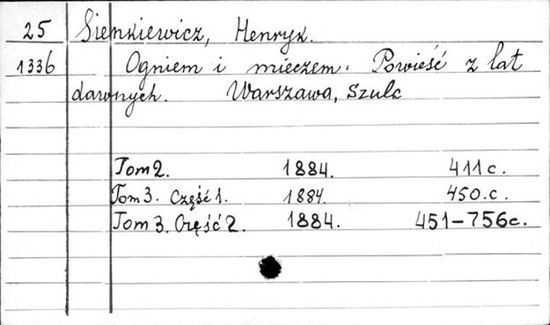 25 Siemkiewicz, Henryk.
1336 Ogniem i mieczem. Powieść z lat
dawnych. Warszawa, Szulc
Tom 2. 1884. 411 c.
Tom 3. Część 1. 1884. 450. c.
Tom 3. Część 2. 1884. 451-756c.